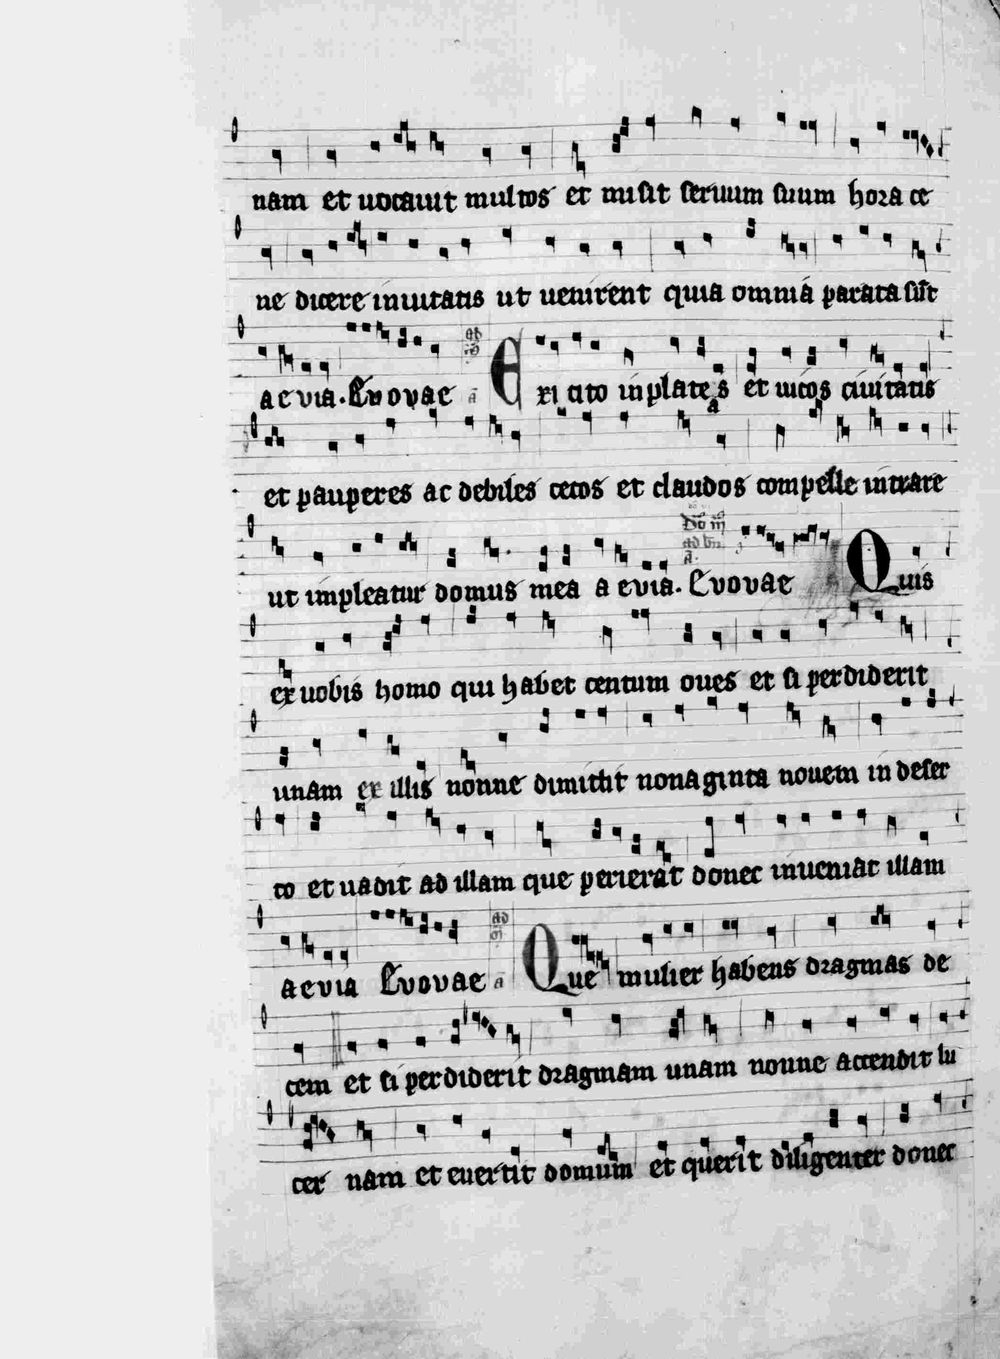 nam et uocauit multos et misit seruum suum hora ce
ne dicere inuitatis ut uenirent quia omnia parata sūt
aeuia. Euouae a Exi cito in plateas et uicos ciuitatis
et pauperes ac debiles cecos et claudos compelle intrare
ut impleatur domus mea aeuia. Euouae Quis
ex uobis homo qui habet centum oues et si perdiderit
unam ex illis nonne dimittit nonaginta nouem in deser
to et uadit ad illam que perierat donec inueniat illam
aeuia Euouae a Que mulier habens dragmas de
cem et si perdiderit dragmam unam nonne accendit lu
cer nam et euertit domum et querit diligenter donec